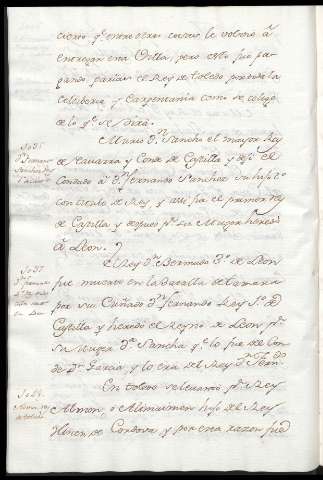 cierro q.e entre otras cosas le volvio à
entregar esta Villa, pero esto fue pa
gando parias el Rey de Toledo por toda la
Celtiberia y Carpentania como se colige
de lo q.e se dirà.
1035
Murio D.n Sancho el mayor Rey
de Navarra y Conde de Castilla y dejo el
Condado à D.n Fernando Sanchez su hijo 2.o
con titulo de Rey, y asi fue el primer rey
de Castilla y despues p.r su Muger heredò
à Leon.
1037
El Rey D.n Bermudo 3.o de Leon
fue muerto en la Batalla de Tamara
por su Cuñado D.n Fernando Rey 1.o de
Castilla y heredò el Reyno de Leon p.r
su Muger D.a Sancha q.e lo fue del Con
de D.n Garcia, y lo era del Rey D.n Fern.do
En Toledo se levantò p.r Rey
Almon, o Alimaimon hijo del Rey
Hisen de Cordova, y por esta razon fue